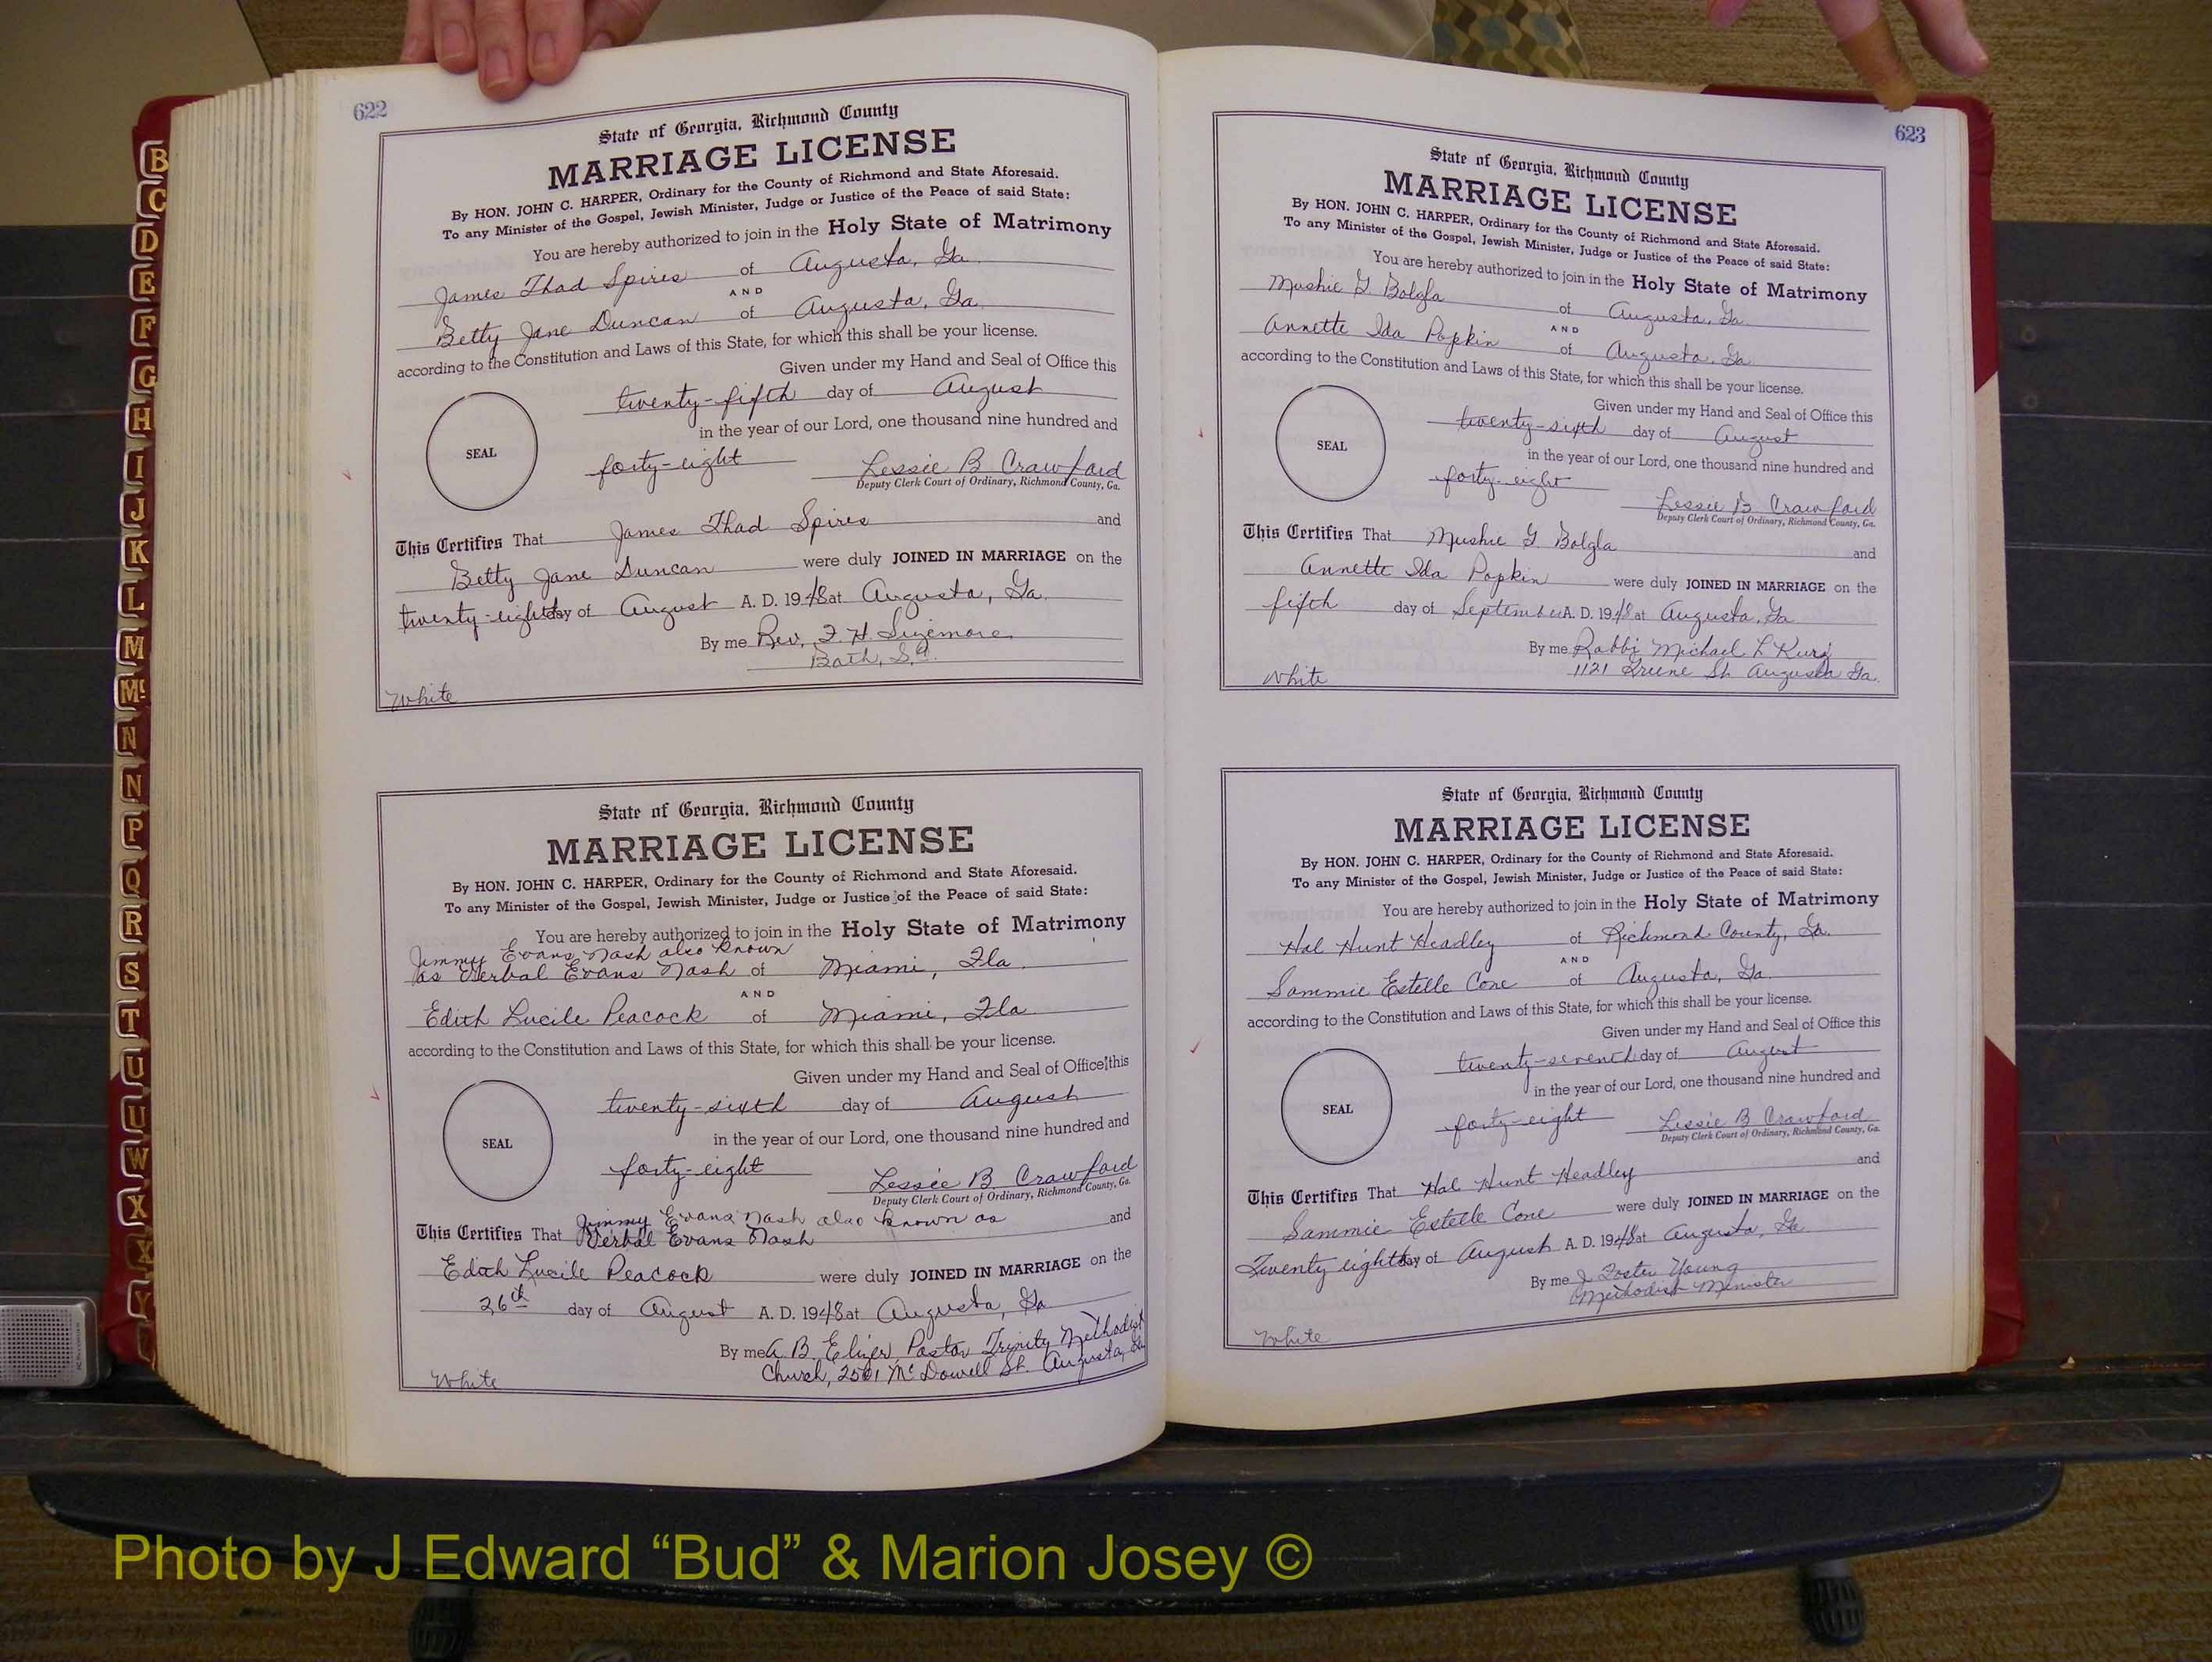 622
State of Georgia, Richmond County
MARRIAGE LICENSE
By HON. JOHN C. HARPER, Ordinary for the County of Richmond and State Aforesaid.
To any Minister of the Gospel, Jewish Minister, Judge or Justice of the Peace of said State:
You are hereby authorized to join in the Holy State of Matrimony
James Thad Spires of Augusta, Ga.
AND
Betty Jane Duncan of Augusta, Ga.
according to the Constitution and Laws of this State, for which this shall be your license.
Given under my Hand and Seal of Office this
twenty-fifth day of August
in the year of our Lord, one thousand nine hundred and
SEAL
forty-eight Lessie B. Crawford
Deputy Clerk Court of Ordinary, Richmond County, Ga.
This Certifies That James Thad Spires and
Betty Jane Duncan were duly JOINED IN MARRIAGE on the
twenty-eighth day of August A. D. 1948 at Augusta, Ga.
By me Rev. F. H. Sizemore
Bath, S.C.
White
State of Georgia, Richmond County
MARRIAGE LICENSE
By HON. JOHN C. HARPER, Ordinary for the County of Richmond and State Aforesaid.
To any Minister of the Gospel, Jewish Minister, Judge or Justice of the Peace of said State:
You are hereby authorized to join in the Holy State of Matrimony
Jimmy Evans Nash also known
as Verbal Evans Nash of Miami, Fla.
AND
Edith Lucile Peacock of Miami, Fla.
according to the Constitution and Laws of this State, for which this shall be your license.
Given under my Hand and Seal of Office this
twenty-sixth day of August
in the year of our Lord, one thousand nine hundred and
SEAL
forty-eight Lessie B. Crawford
Deputy Clerk Court of Ordinary, Richmond County, Ga.
This Certifies That Jimmy Evans Nash also known as and
Verbal Evans Nash
Edith Lucile Peacock were duly JOINED IN MARRIAGE on the
26th day of August A. D. 1948 at Augusta, Ga.
By me A. B. Elizer Pastor Trinity Methodist
Church, 2501 McDowell St. Augusta, Ga.
White
623
State of Georgia, Richmond County
MARRIAGE LICENSE
By HON. JOHN C. HARPER, Ordinary for the County of Richmond and State Aforesaid.
To any Minister of the Gospel, Jewish Minister, Judge or Justice of the Peace of said State:
You are hereby authorized to join in the Holy State of Matrimony
Mushie G Bolgla of Augusta, Ga.
AND
Annette Ida Popkin of Augusta, Ga.
according to the Constitution and Laws of this State, for which this shall be your license.
Given under my Hand and Seal of Office this
twenty-sixth day of August
in the year of our Lord, one thousand nine hundred and
SEAL
forty-eight Lessie B. Crawford
Deputy Clerk Court of Ordinary, Richmond County, Ga.
This Certifies That Mushie G Bolgla and
Annette Ida Popkin were duly JOINED IN MARRIAGE on the
fifth day of September A. D. 1948 at Augusta, Ga
By me Rabbi Michael L
1121 Greene St. Augusta Ga.
White
State of Georgia, Richmond County
MARRIAGE LICENSE
By HON. JOHN C. HARPER, Ordinary for the County of Richmond and State Aforesaid.
To any Minister of the Gospel, Jewish Minister, Judge or Justice of the Peace of said State:
You are hereby authorized to join in the Holy State of Matrimony
Hal Hunt Headley of Richmond County, Ga.
AND
Sammie Estelle Cone of Augusta, Ga.
according to the Constitution and Laws of this State, for which this shall be your license.
Given under my Hand and Seal of Office this
twenty-seventh day of August
in the year of our Lord, one thousand nine hundred and
SEAL
forty-eight Lessie B Crawford
Deputy Clerk Court of Ordinary, Richmond County, Ga.
This Certifies That Hal Hunt Headley and
Sammie Estelle Cone were duly JOINED IN MARRIAGE on the
Twenty eighth day of August A. D. 1948 at Augusta, Ga.
By me J Foster Young
Methodist Minister
White
B
C
D
E
F
G
H
I
J
K
L
M
Mc
N
N
P
Q
R
S
T
U
U
W
X
X
Y
Photo by J Edward “Bud” & Marion Josey ©